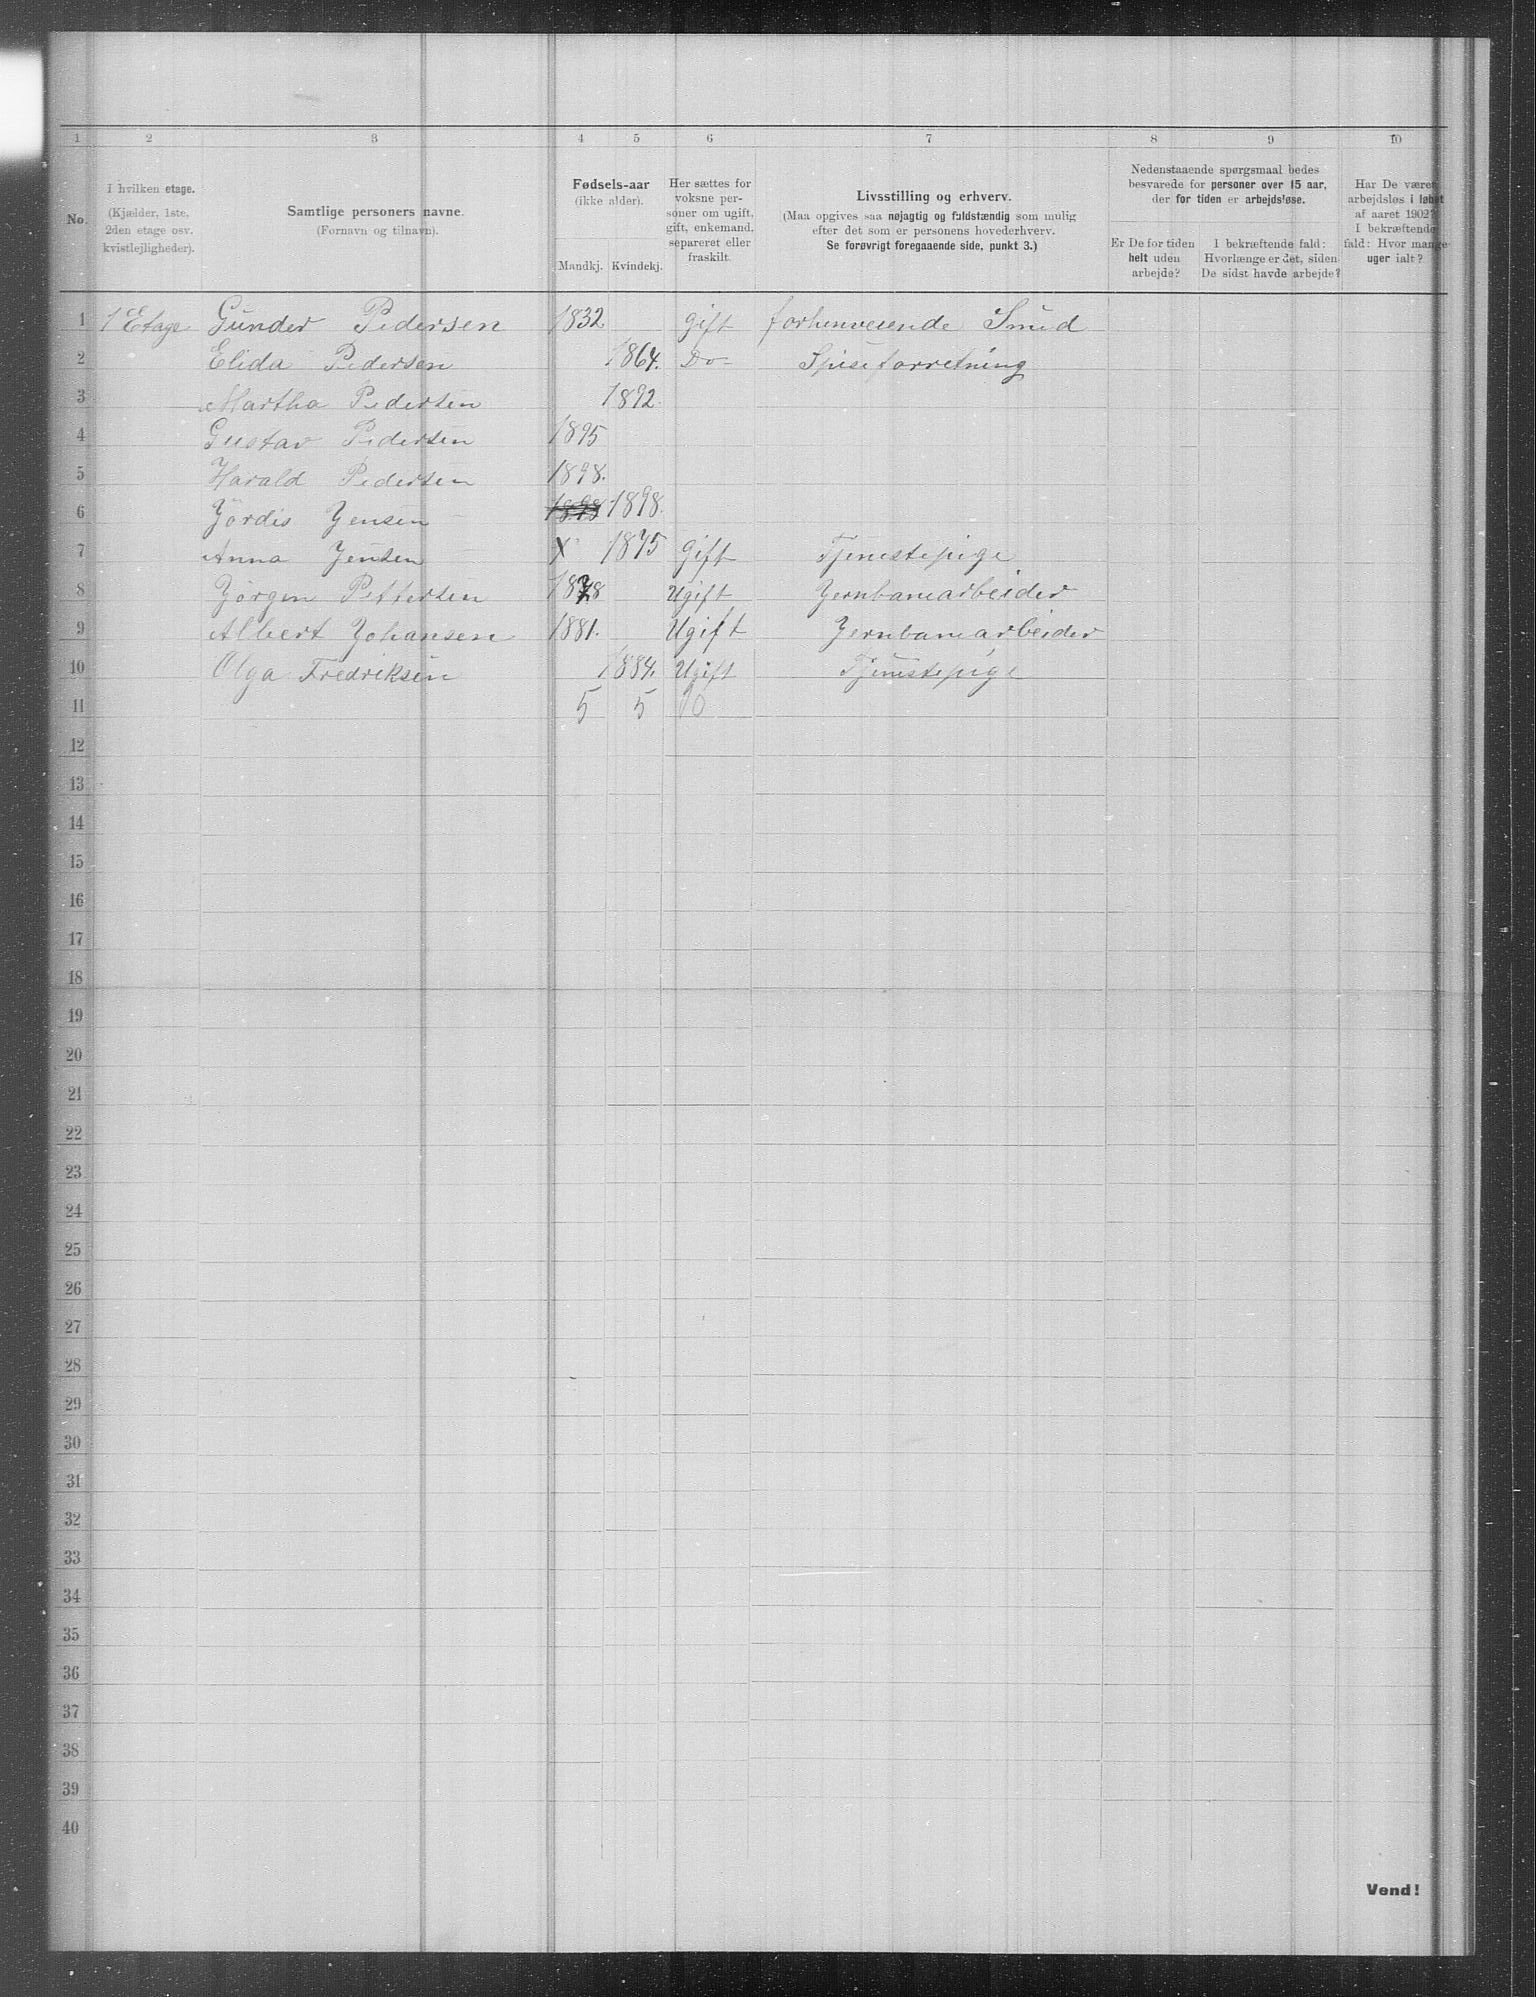 1 2 3 4 5 6 7 8 9 10
No.
I hvilken etage.
(Kjælder, 1ste,
2den etage osv.
kvistlejligheder).
Samtlige personers navne.
(Fornavn og tilnavn).
Fødsels-aar
(ikke alder).
Mandkj. Kvindekj.
Her sættes for
voksne per-
soner om ugift,
gift, enkemand,
separeret eller
fraskilt.
Livsstilling og erhverv.
(Maa opgives saa nøjagtig og fuldstændig som mulig
efter det som er personens hovederhverv.
Se forøvrigt foregaaende side, punkt 3.)
Nedenstaaende spørgsmaal bedes
besvarede for personer over 15 aar,
der for tiden er arbejdsløse.
Er De for tiden
helt uden
arbejde?
I bekræftende fald:
Hvorlænge er det, siden
De sidst havde arbejde?
Har De været
arbejdsløs i løbet
af aaret 1902?
I bekræftende
fald: Hvor mange
uger ialt?
1 1 Etage Gunder Pedersen 1832 Gift forhenverende Smed
2 Elida Pedersen 1864. Do- Spiseforretning
3 Martha Pedersen 1892.
4 Gustav Pedersen 1895
5 Harald Pedersen 1898.
6 Jördis Jensen 1898 1898.
7 Anna Jensen X 1875 Gift Tjenestepige
8 Jörgen Pettersen 1878 Ugift Jernbanearbeider
9 Albert Johansen 1881. Ugift Jernbanearbeider
10 Olga Fredriksen 1884. Ugift Tjenestepige
11 5 5 10
12
13
14
15
16
17
18
19
20
21
22
23
24
25
26
27
28
29
30
31
32
33
34
35
36
37
38
39
40
Vend!